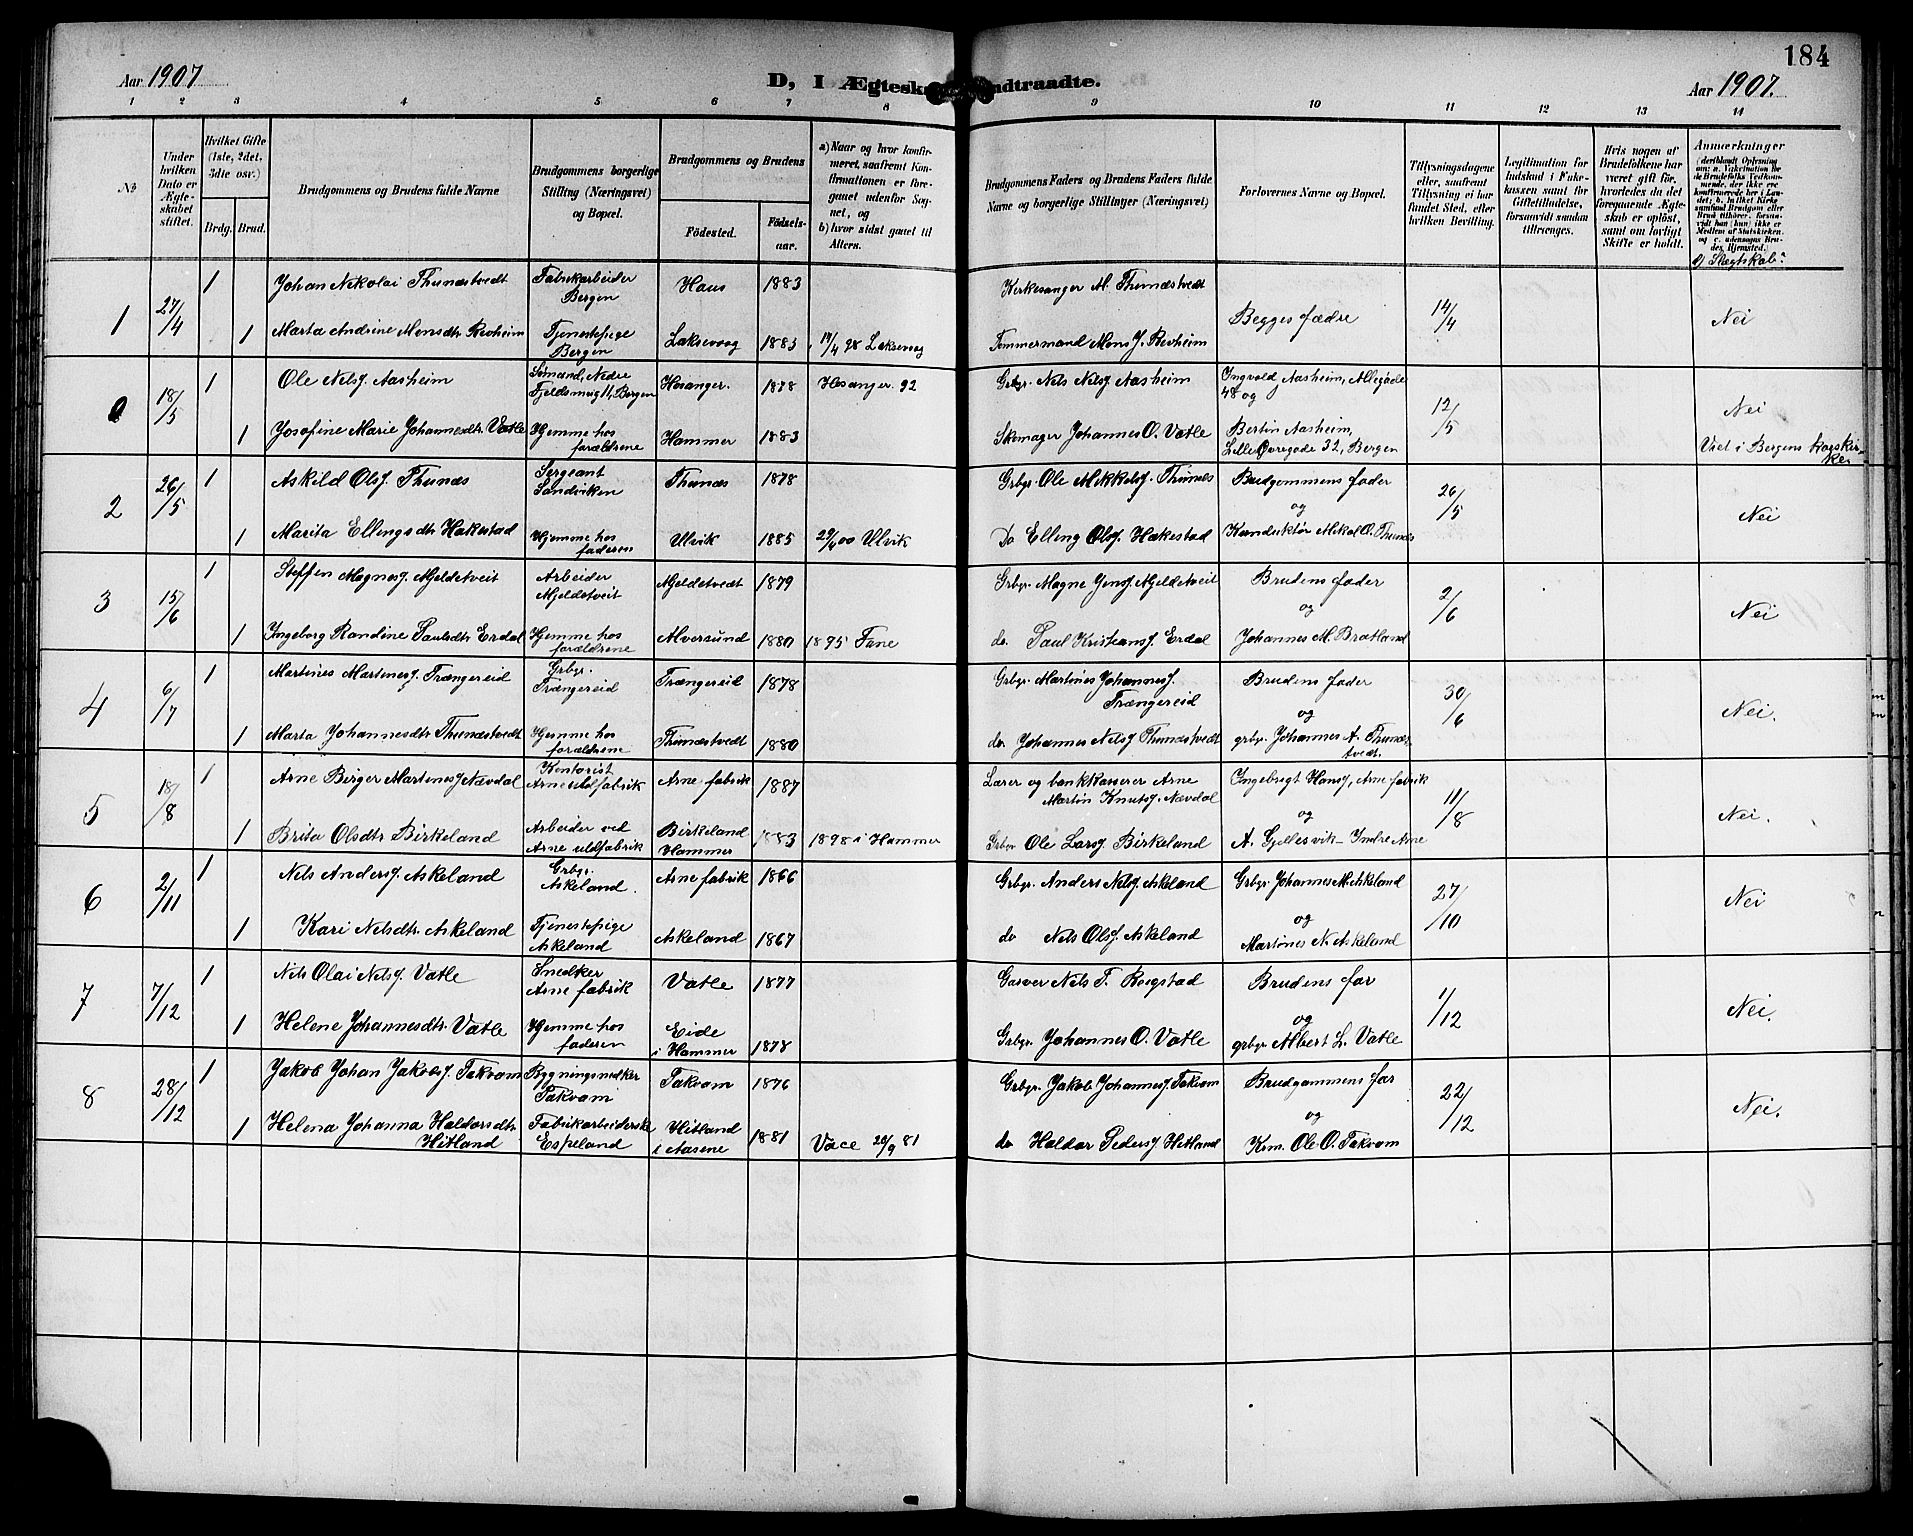 184
Aar 1907
D, I Ægtesk ndtraadte.
Aar 1907.
1 2 3 4 5 6 7 8 9 10 11 12 13 14
No
Under hvilken Dato er Ægteskabet stiftet.
Hvilket Gifte (1ste, 2det, 3die osv.)
Brdg. Brud.
Brudgommens og Brudens fulde Navne
Brudgommens borgerlige Stilling (Næringsvei) og Bopæl.
Brudgommens og Brudens
Fødested.
Fødsels-aar.
a) Naar og hvor konfirmeret, saafremt Konfirmationen er foregaaet udenfor Sognet, og
b) hvor sidst gaaet til Alters.
Brudgommens Faders og Brudens Faders fulde Navne og borgerlige Stillinger (Næringsvei)
Forlovernes Navne og Bopæl.
Tillysningsdagene eller, saafremt Tillysning ei har fundet Sted, efter hvilken Bevilling.
Legitimation for Indskud i Enkekassen samt for Giftetilladelse, forsaavidt saadan tiltrænges.
Hvis nogen af Brudefolkene har været gift før, hvorledes da det foregaaende Ægteskab er opløst, samt om lovligt Skifte er holdt.
Anmerkninger
d) Slægtskab?
1 27/4 1 Johan Nikolai Thunestvedt Fabrikarbeider Bergen Haus 1883 Kirkesanger M. Thunestvedt Begges fædre 14/4 Nei
1 Marta Andrine Monsdtr. Revheim Tjenestepige Bergen Laksevaag 1883 17/4 98 Laksevaag Tømmermand Mons J. Revheim
0 18/5 1 Ole Nelsj. Aasheim Sømand, Nedre Fjeldsmug 11, Bergen Hosanger. 1878 Hosanger 92 Grbgr. Nels Nelsj. Aasheim Ingvald Aasheim, Allégade 48 og 12/5 Nei
1 Josefine Marie Johannesdtr. Vatle Hjemme hos forældrene Hammer 1883 Skomager Johannes O. Vatle Bertin Aasheim, Lille Øvregade 32, Bergen Viet i Bergens korskirke
2 26/5 1 Askild Olsj. Thunes Sergeant Sandviken Thunes 1878 Grbgr. Ole Mikkelsj. Thunes Brudgommens fader og 26/5 Nei
1 Marita Ellingsdtr. Hakestad Hjemme hos faderen Ulvik 1885 29/4 00 Ulvik Do Elling Olsj. Hakestad Konduktør Mikal O. Thunes
3 15/6 1 Steffen Magnesj. Mjeldetveit Arbeider Mjeldetveit Mjeldetvedt 1879 Grbgr. Magne Jensj. Mjeldetveit Brudens fader og 2/6 Nei
1 Ingeborg Randine Paulsdtr. Erdal Hjemme hos forældrene Alversund 1880 1895 Fane do. Paul Kristiansj. Erdal Johannes M. Bratland
4 6/7 1 Martines Martinesj. Trængereid Grbgr. Trængereid Trængereid 1878 Grbgr. Martines Johannesj. Trængereid Brudens fader og 30/6 Nei.
1 Marta Johannesdtr. Thunestvedt Hjemme hos forældrene Thunestvedt 1880 do. Johannes Nelsj. Thunestvedt grbgr. Johannes A. Thunestvedt.
5 18/8 1 Arne Birger Martinesj. Nævdal Kontorist Arne uldfabrik Arne fabrik 1887 Lærer og bankkasserer Arne Martin Knutsj. Nævdal Ingebrigt Hansj, Arne fabrik og 11/8 Nei.
1 Brita Olsdtr. Birkeland Arbeider ved Arne uldfabrik Birkeland Hammer 1883 1898 i Hammer Grbgr Ole Larsj. Birkeland A. Gjellesvik - Indre Arne
6 2/11 1 Nels Andersj. Askeland Grbgr. Askeland. Arne fabrik 1866 Grbgr. Anders Nelsj. Askeland Grbgr. Johannes M. Askeland og 27/10 Nei
1 Kari Nelsdtr. Askeland Tjenestepige Askeland Askeland 1867 do Nels Olsj. Askeland Martines N. Askeland
7 7/12 1 Nils Olai Nelsj. Vatle Snedker Arne fabrik Vatle 1877 Garver Nels T. Borgstad Brudens far og 1/12 Nei.
1 Helene Johannesdtr. Vatle Hjemme hos faderen Eide i Hammer 1878 Grbgr. Johannes O. Vatle grbgr. Albert L. Vatle
8 28/12 1 Jakob Johan Jakobsj. Takvam Bygningssnedker Takvam Takvam 1876 Grbgr. Jakob Johannesj. Takvam Brudgommens far og 22/12 Nei.
1 Helena Johanna Haldorsdtr. Hitland Fabrikarbeiderske Espeland Hitland i Aasene 1881 Vace 20/9 81 do Haldor Pedersj. Hitland Krm. Ole O. Takvam